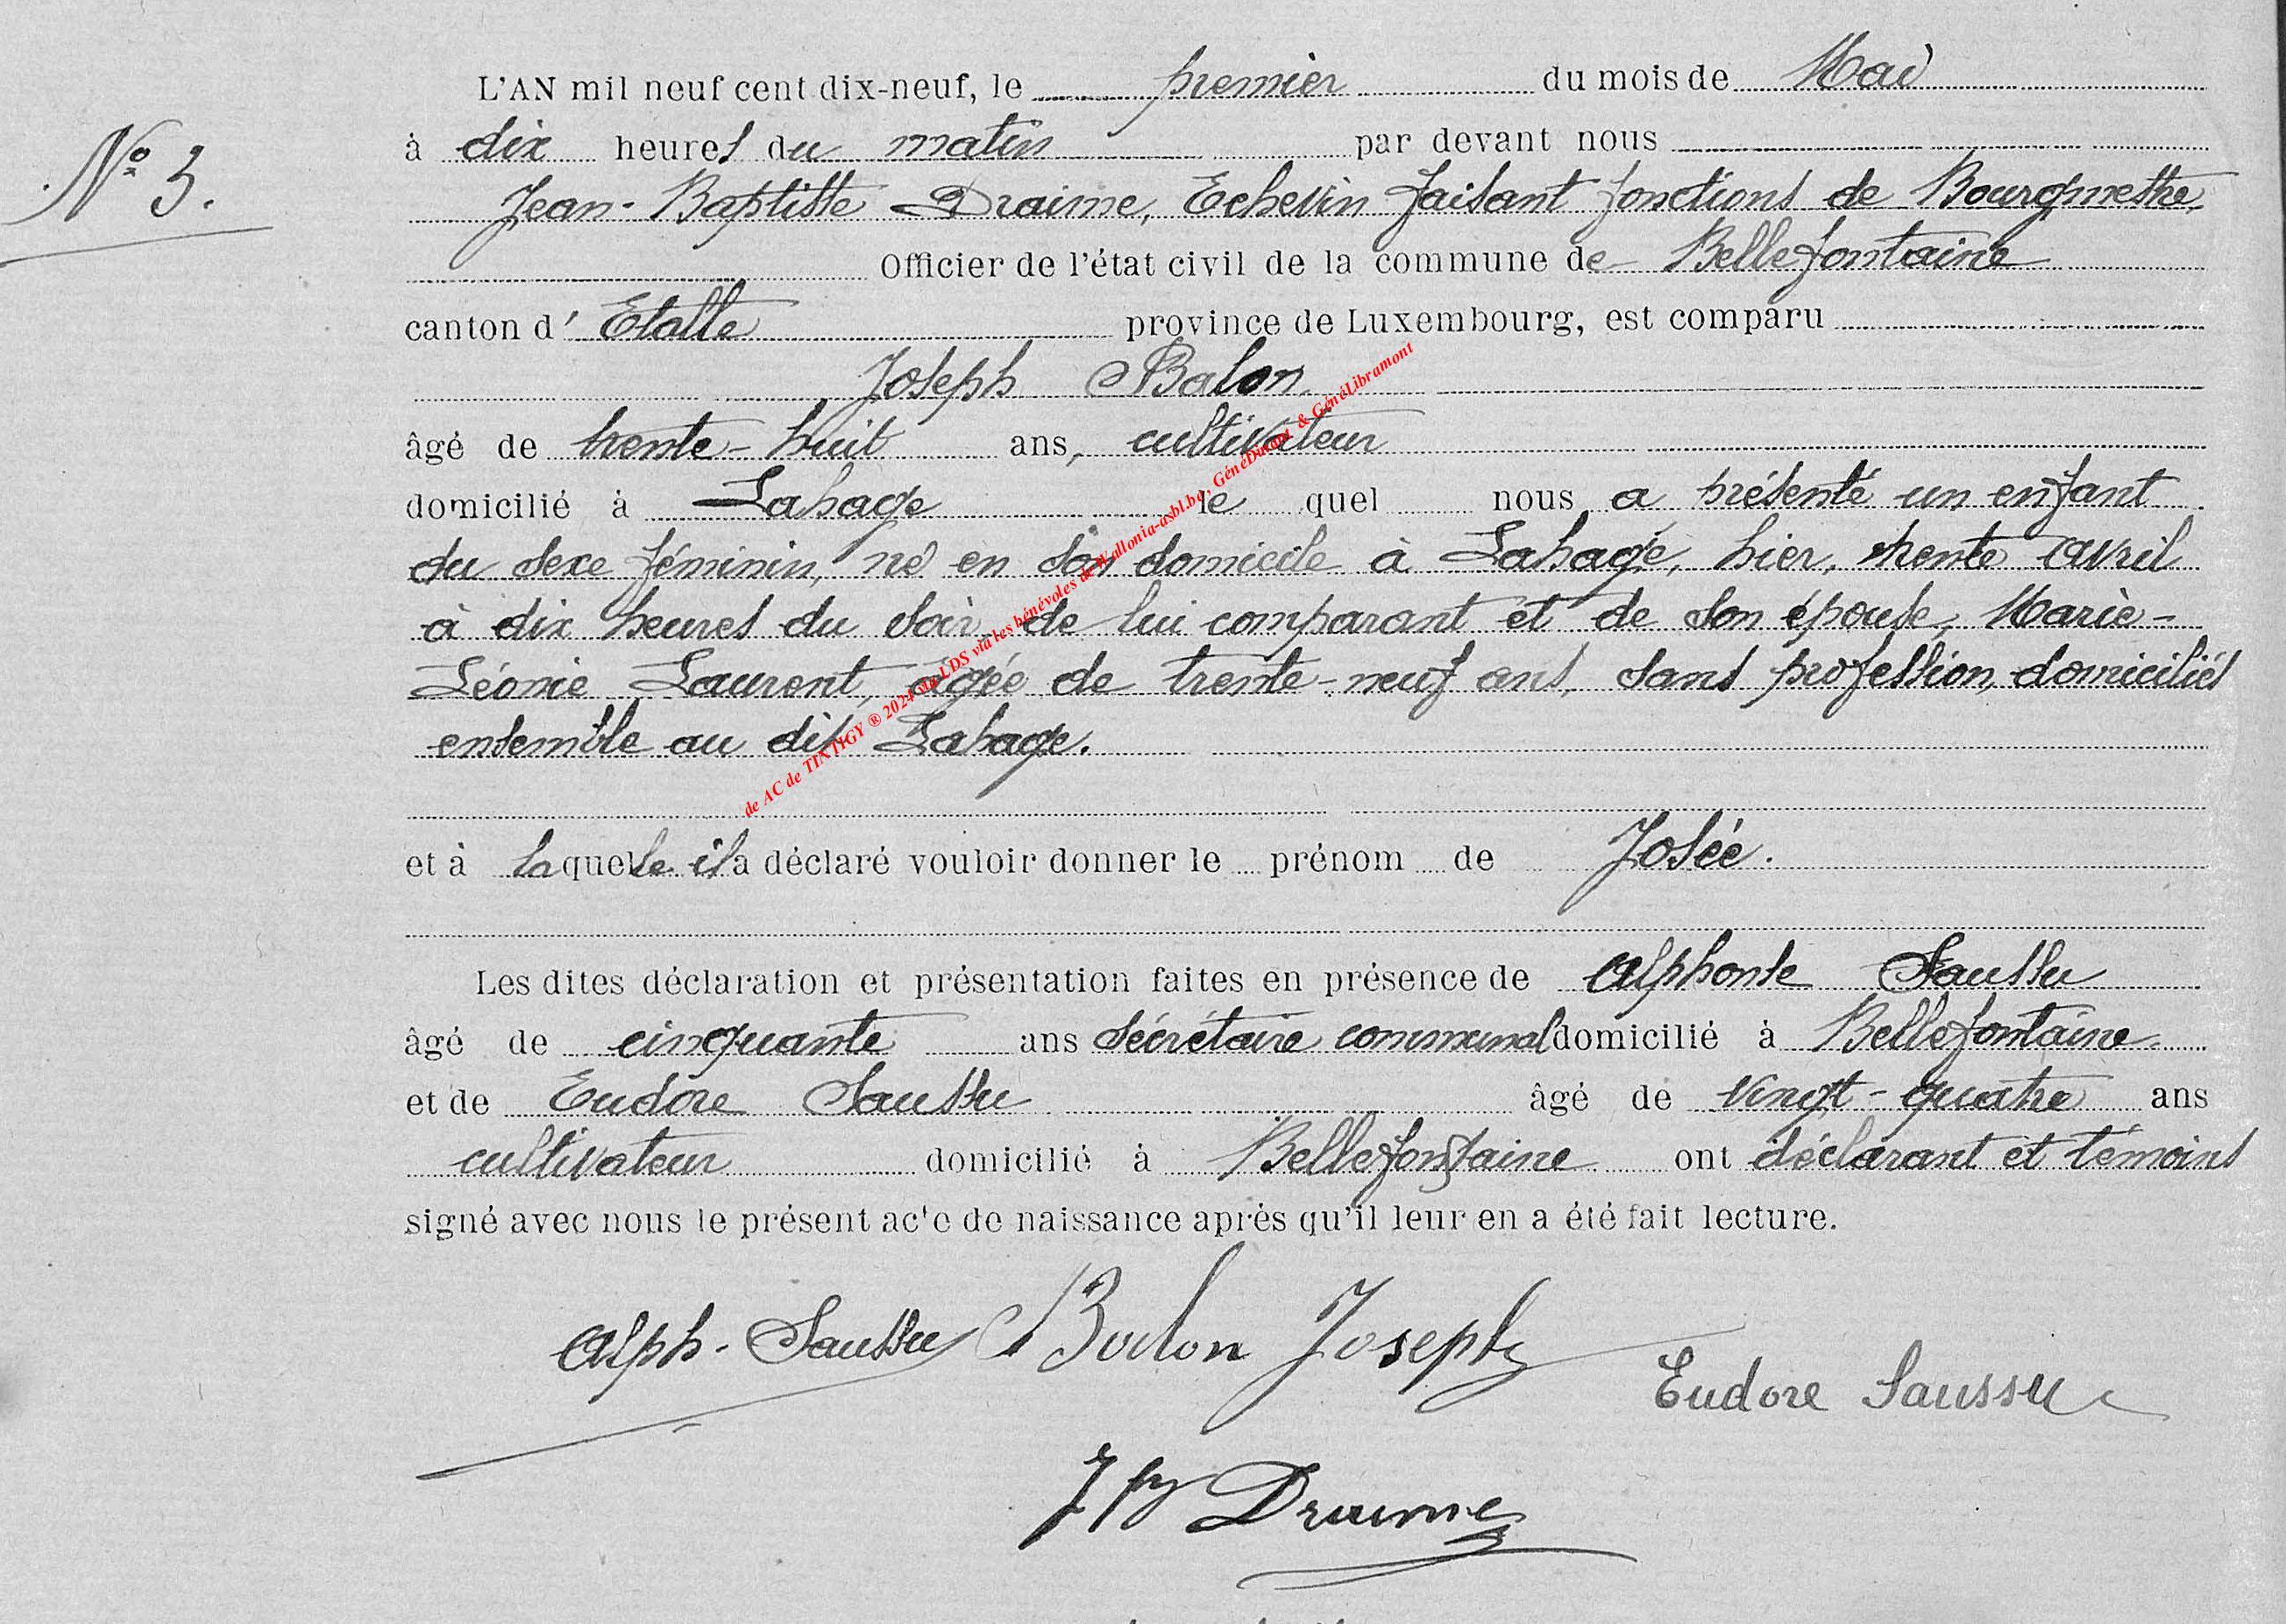 L'AN mil neuf cent dix-neuf, le premier du mois de Mai
N° 3.
à dix heures du matin par devant nous
Jean-Baptiste Draime, Echevin faisant fonctions de Bourgmestre,
Officier de l'état civil de la commune de Bellefontaine
canton d'Etalle province de Luxembourg, est comparu
Joseph Balon
âgé de trente-huit ans, cultivateur
domicilié à Lahage le quel nous a présenté un enfant
du sexe féminin, né en son domicile à Lahage, hier, trente avril
à dix heures du soir, de lui comparant et de son épouse, Marie-
Léonie Laurent, âgée de trente-neuf ans, sans profession, domiciliés
ensemble au dit Lahage.
et à laquelle il a déclaré vouloir donner le prénom de Josée.
Les dites déclaration et présentation faites en présence de Alphonse Saussu
âgé de cinquante ans sécrétaire communal domicilié à Bellefontaine
et de Eudore Saussu âgé de vingt-quatre ans
cultivateur domicilié à Bellefontaine ont déclarant et témoins
signé avec nous le présent acte de naissance après qu'il leur en a été fait lecture.
Alph. Saussu Balon Joseph
Eudore Saussu
JB Draime
de AC de TINTIGY ® 2024 via LDS via les bénévoles de Wallonia-asbl.be, GénéDinant & GénéLibramont